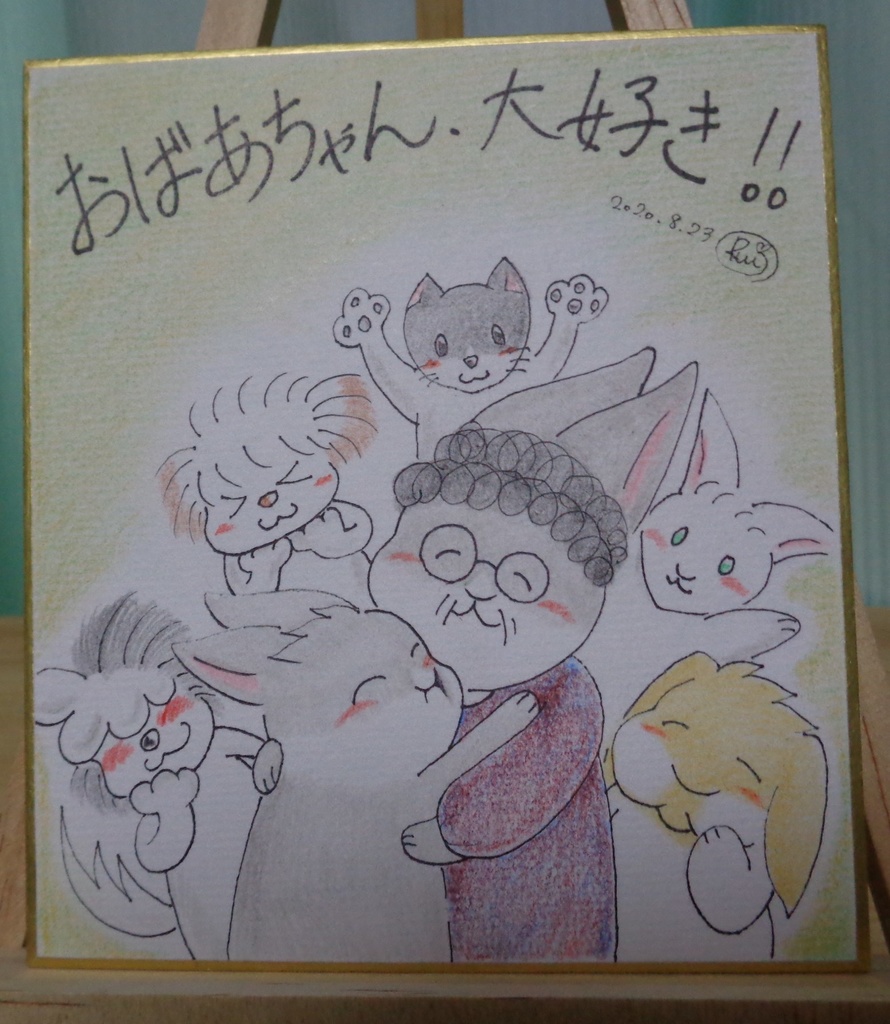 おばあちゃん、大好き!!
2020.8.23